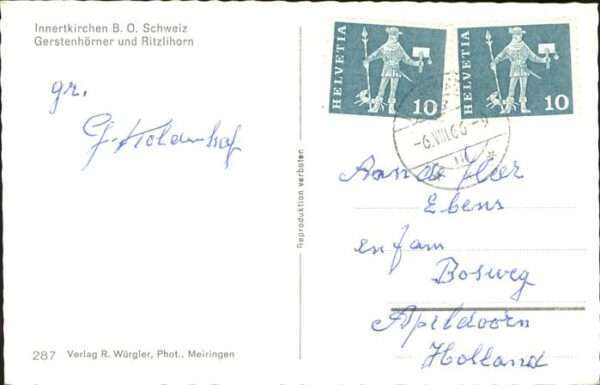 Innertkirchen B. O. Schweiz
Gerstenhörner und Ritzlihorn
HELVETIA 10
HELVETIA 10
-6.VIII.66.-9
gr.
Reproduktion verboten
Aan de Heer
Ebens
en fam
Bosweg
Apeldoorn
Holland
287 Verlag R. Würgler, Phot., Meiringen